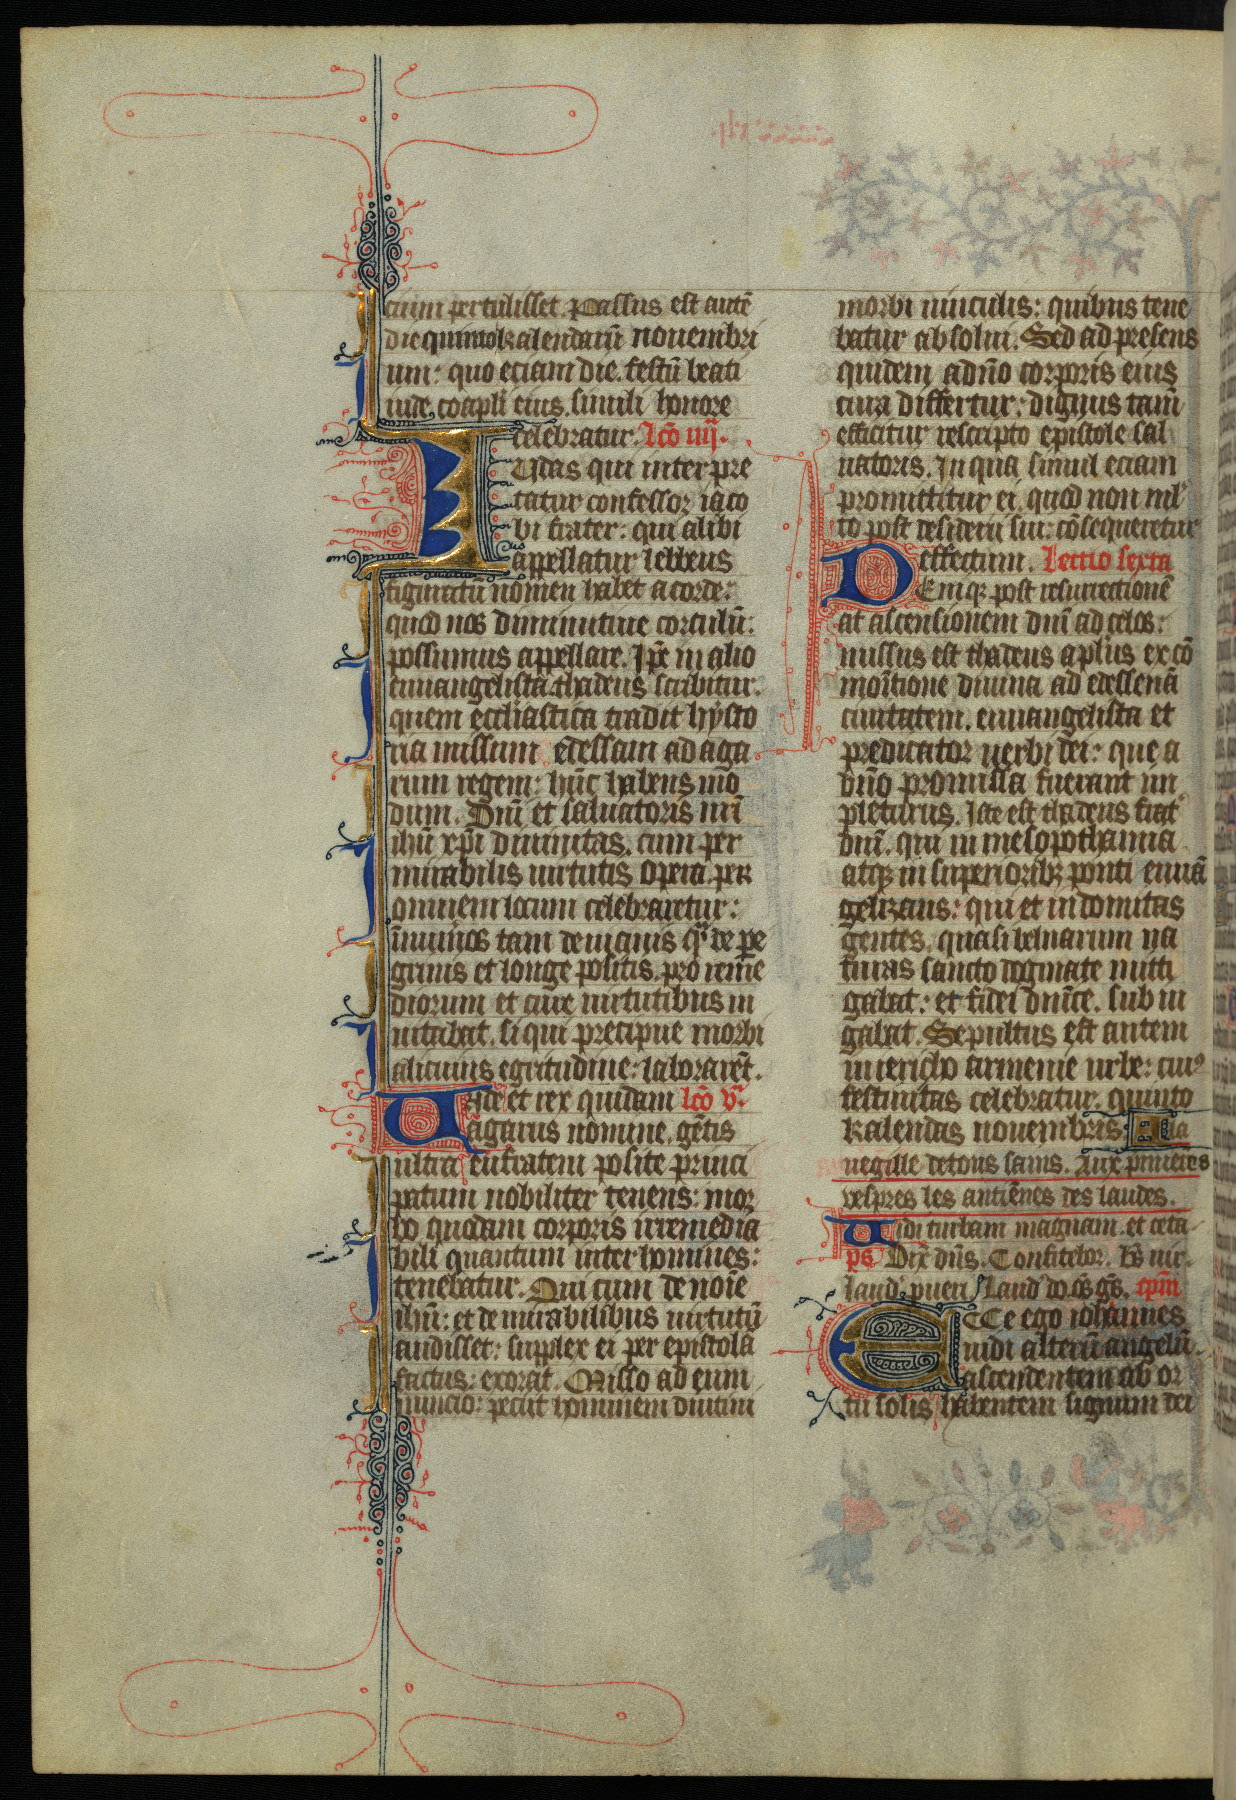 cium pertulisset. Passus est autē
die quinto kalendarū nouembri
um: quo eciam die. festū beati
iude, coapli eius. simili honore
celebratur. lc̄o iiij.
Iudas qui interpre
tatur confessor iaco
bi frater: qui alibi
appellatur lebbeus
figuratū nomen habet a corde:
quod nos diminutiue corculū:
possumus appellare. Ip̄e in alio
euuangelista thadeus scribitur.
quem eccliastica tradit hysto
ria missum edessam ad aga
rum regem: hūc habens mo
dum. Dn̄i et saluatoris nr̄i
ihū xp̄i diuinitas. cum per
mirabilis uirtutis opera. per
omnem locum celebraretur:
īnumeros tam de uicinis qͣ de pe
grinis et longe positis. pro reme
diorum et cure uirtutibus in
uitabat. si qui precipue morbi
alicuius egritudine: laborarēt.
Unde et rex quidam lc̄o v.ͣ
agarus nomine, gētis
ultra eufratem posite princi
patum nobiliter tenens: mor
bo quodam corporis irremedia
bili quantum inter homines:
tenebatur. Qui cum de noīe
ihū: et de mirabilibus uirtutū
audisset: supplex ei per epistolā
factus: exorat. Misso ad eum
nuncio: petiit hominem diutini
morbi uinculis: quibus tene
batur absolui. Sed ad presens
quidem a dn̄o corporis eius
cura differtur: dignus tam̄
efficitur rescripto epistole sal
uatoris. In qua simul eciam
promittitur ei. quod non ml
to post desiderii sui: cōsequeretur
effectum. Lectio sexta
Deniqꝫ post resurrectionē
at ascensionem dn̄i ad celos:
missus est thadeus aplus ex cō
monitione diuina ad edessenā
ciuitatem. euuangelista et
predicator uerbi dei: que a
dn̄o promissa fuerant im
pleturus. Iste est thadeus frat̄
dn̄i. qui in mesopothamia
atqꝫ in superioribꝫ ponti euuā
gelizans: qui et indomitas
gentes, quasi beluarum na
turas sancto dogmate mitti
gabat: et fidei dn̄ice. sub iu
gabat. Sepultus est autem
in iericho armenie urbe: cuiꝰ
festiuitas celebratur. quinto
kalendas nouembris. La
uegille de tous sains. Aux pmieres
vespres les antiēnes des laudes.
Uidi turbam magnam. et ceta
ps Dix̄ dn̄s. Confitebor. Bꝰ uir.
Laud̄ pueri Laud̄ do. oēs gēs. cpm̄
ECce ego iohannes
uidi alterū angelū.
ascendentem ab or
tu solis habentem signum dei